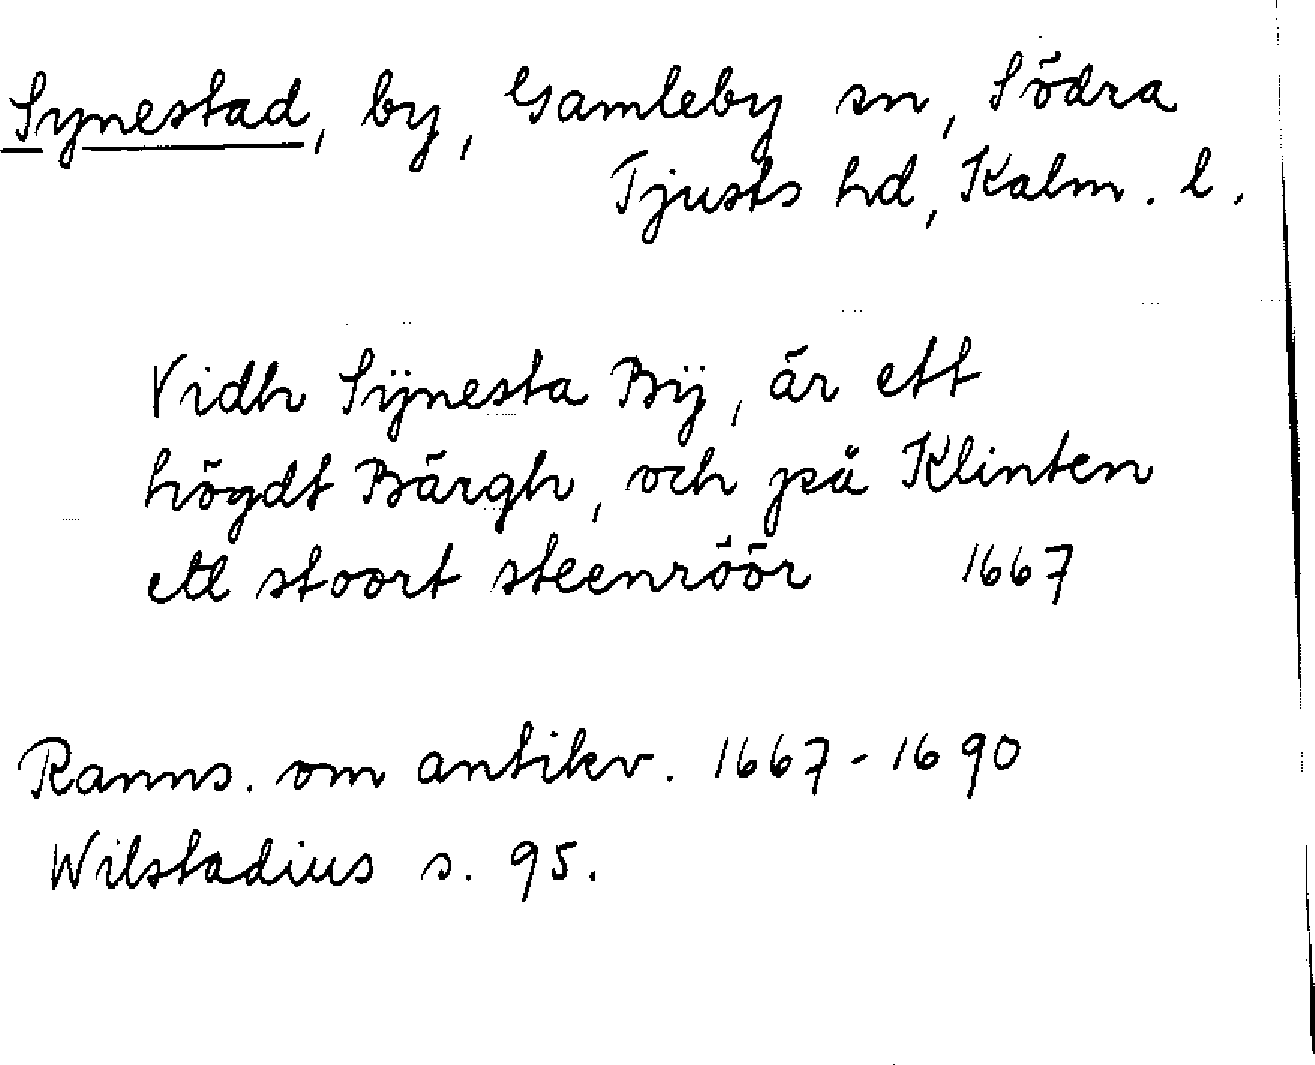 Synestad, by, Gamleby sn, Södra
Tjusts hd, Kalm. l.
Vidh Sÿnesta Bÿ, är ett
högdt Bärgh, och på Klinten
ett stoort steenröör 1667
Ranns. om antikv. 1667-1690
Wilstadius s. 95.